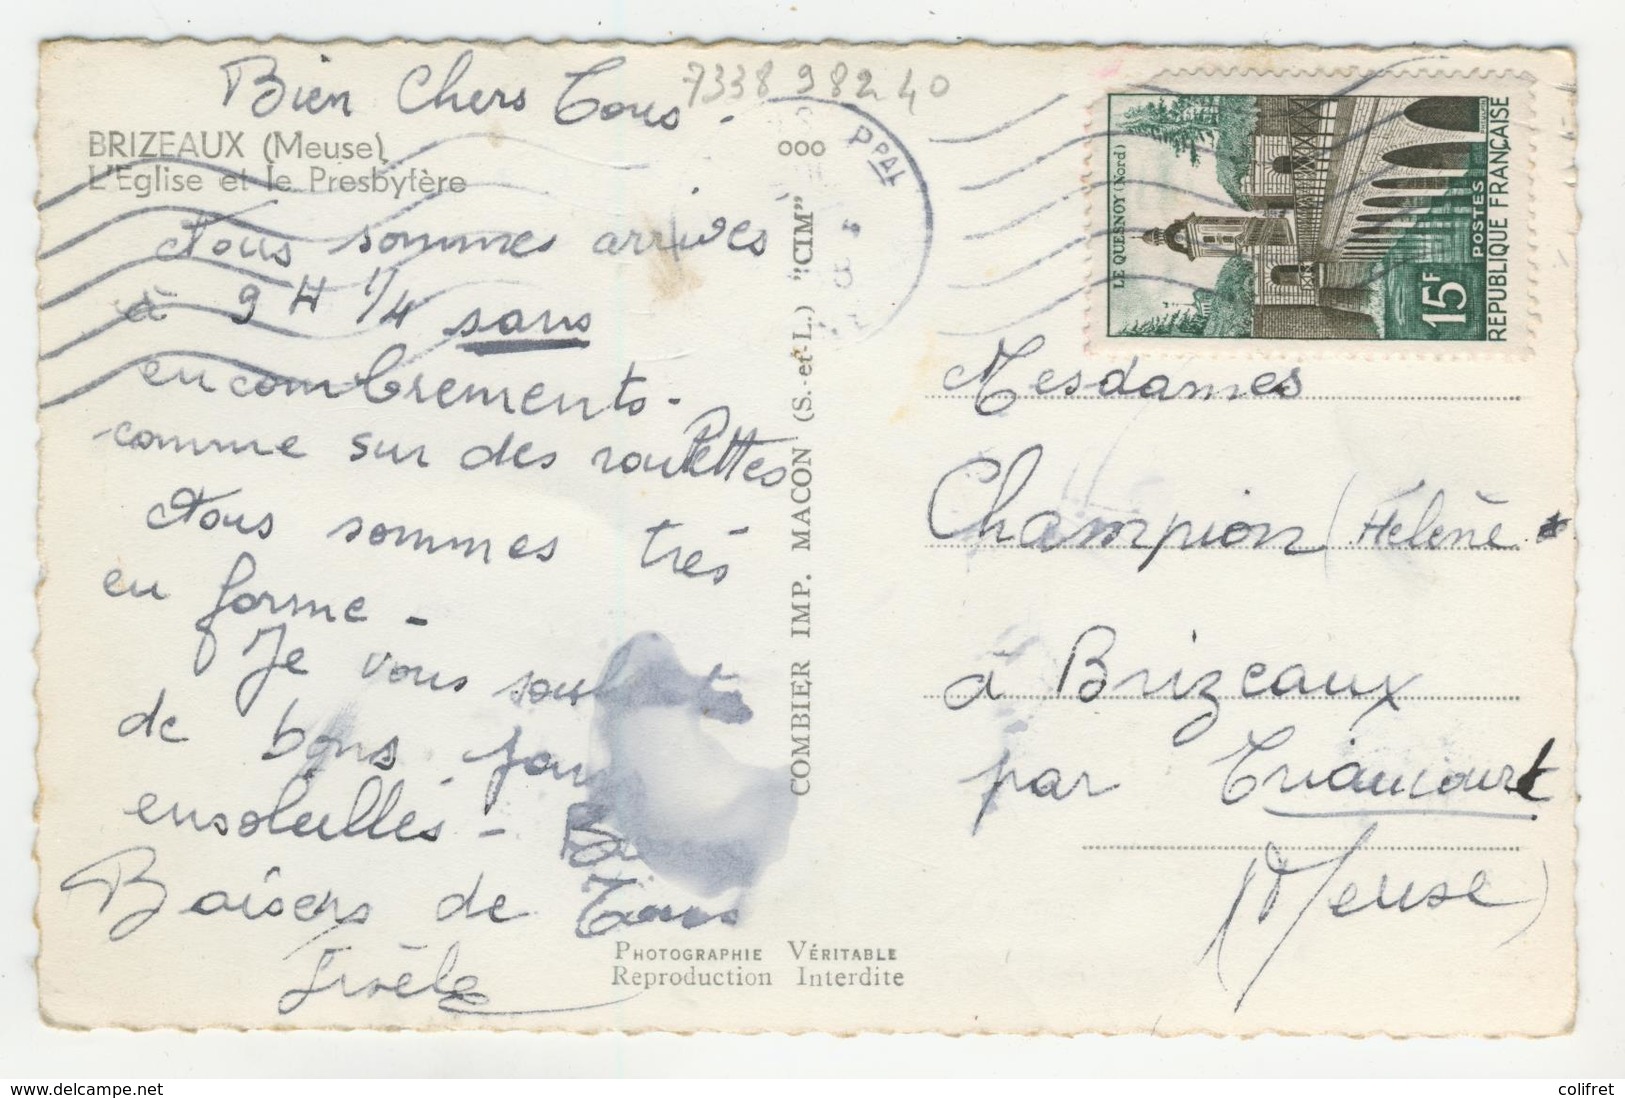 Bien Chers Tous -
7338 98240
BRIZEAUX (Meuse)
L'Eglise et le Presbytère
000
PPAL
Nous sommes arrivés
à 9 H 1/4 sans
encombrements -
comme sur des roulettes
Nous sommes très
en forme -
Je vous
de bons
ensoleillés -
Baisers de Tous
Gisèle
COMBIER IMP. MACON (S.-et-L.) "CIM"
PHOTOGRAPHIE VÉRITABLE
Reproduction Interdite
LE QUESNOY (Nord)
15F
POSTES
REPUBLIQUE FRANÇAISE
Mesdames
Champion (Hélène
à Brizeaux
par Triaucourt
(Meuse)
www.delcampe.net
colifret